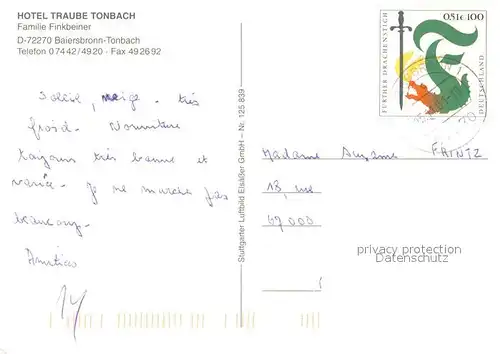 HOTEL TRAUBE TONBACH
Familie Finkbeiner
D-72270 Baiersbronn-Tonbach
Telefon 0 74 42 / 49 20 · Fax 49 26 92
Soleil, neige. très
froid. Nourriture
toujours très bonne et
variée. Je ne marche pas
beaucoup.
Amitiés
Stuttgarter Luftbild Elsäßer GmbH – Nr. 125 839
FURTHER DRACHENSTICH
0,51€ 100
DEUTSCHLAND
Madame Suzanne FRINTZ
18, rue
67000
privacy protection
Oldthing.de